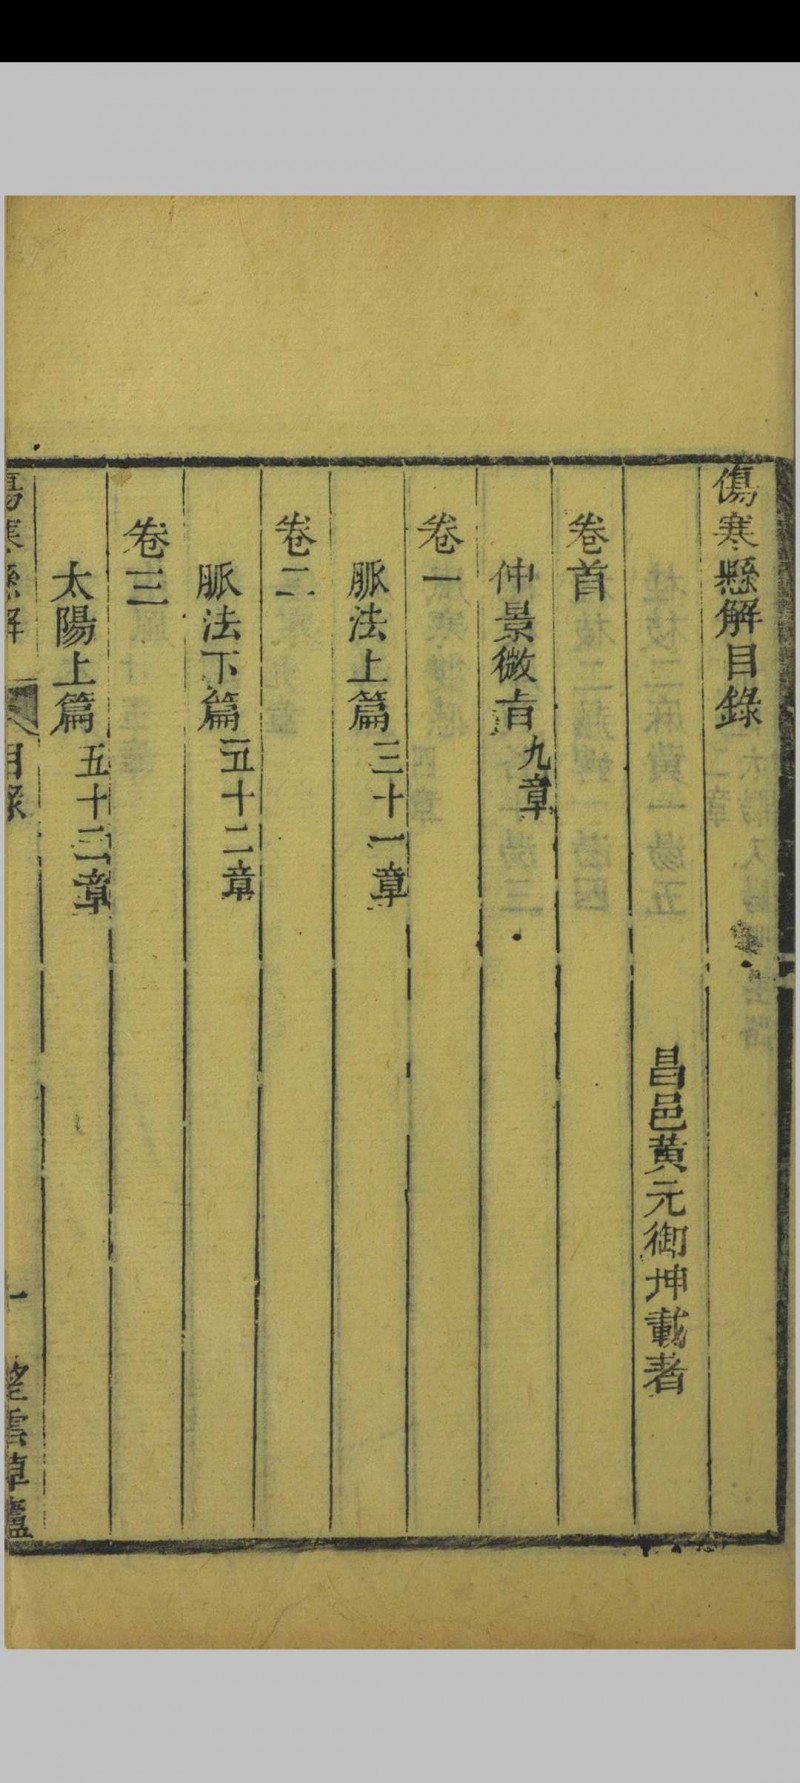 傷寒懸解目錄
昌邑黄元御坤載著
卷首
仲景微旨九章
卷一
脈法上篇三十一章
卷二
脈法下篇五十二章
卷三
太陽上篇五十三章
傷寒懸解
目錄
一